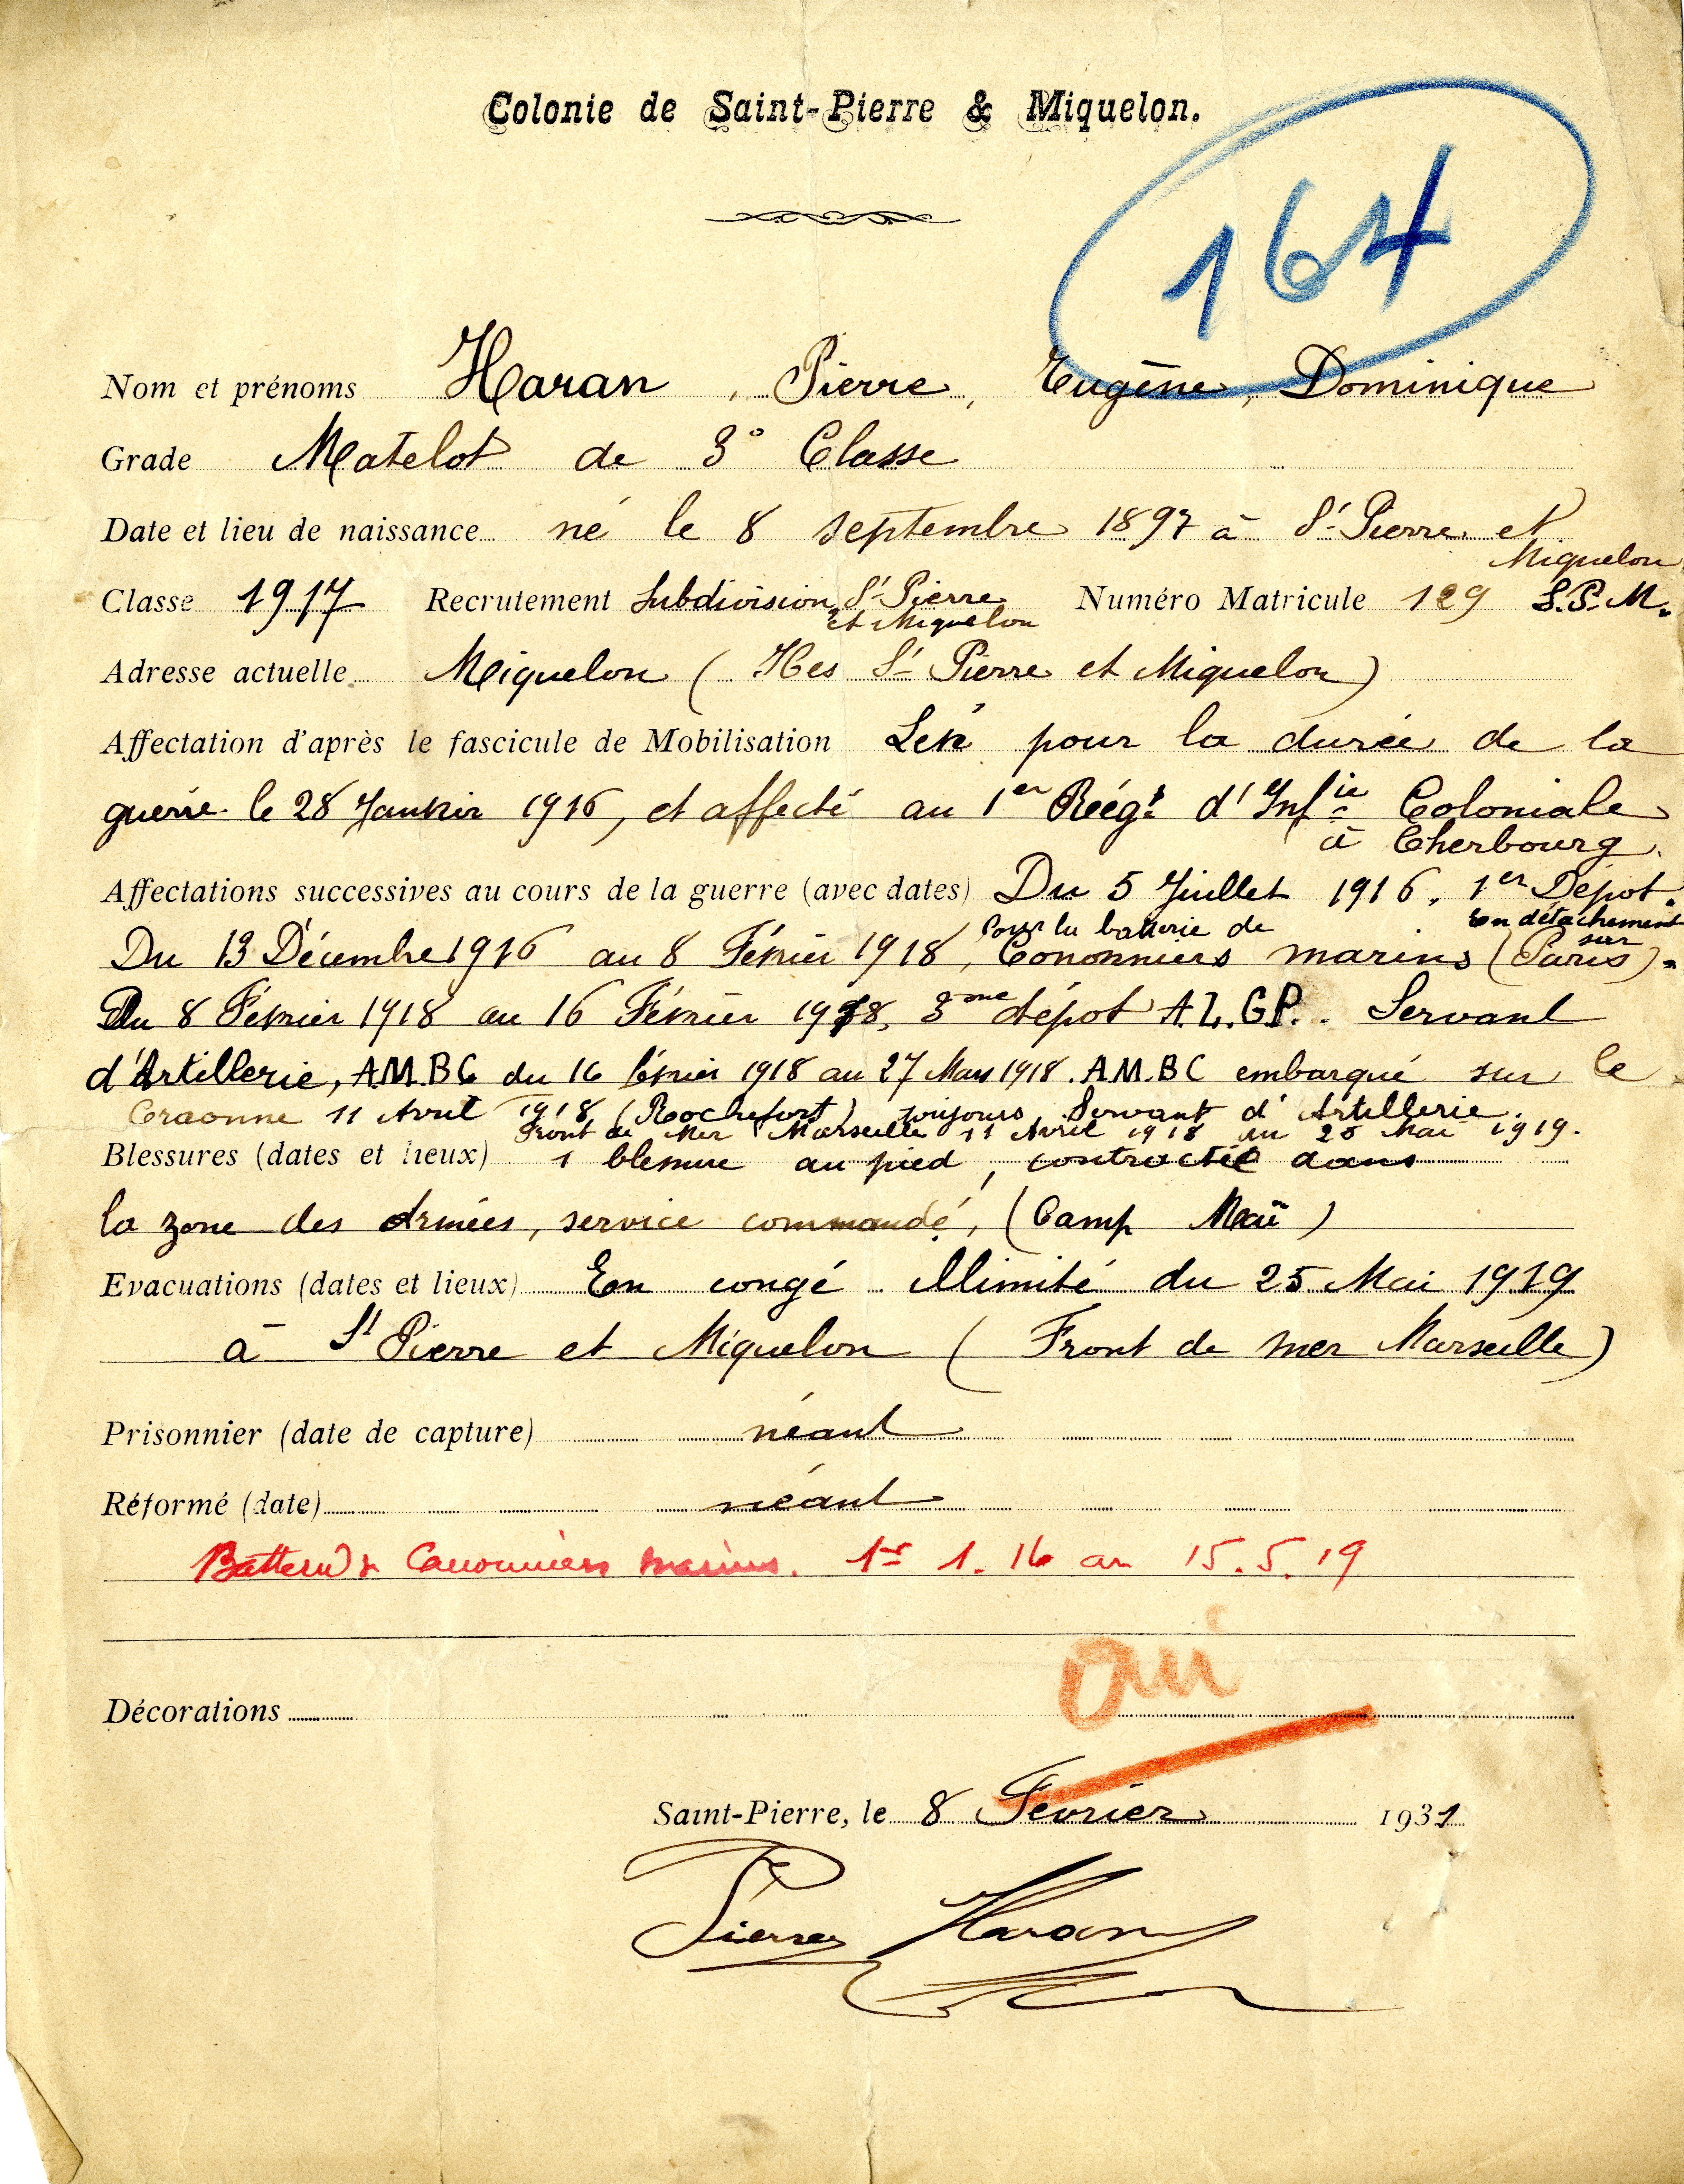 Colonie de Saint-Pierre & Miquelon.
164
Nom et prénoms Haran, Pierre, Eugène, Dominique
Grade Matelot de 3e Classe
Date et lieu de naissance né le 8 septembre 1897 à St Pierre et
Miquelon
Classe 1917 Recrutement Subdivision St Pierre Numéro Matricule 129 S.P.M.
et Miquelon
Adresse actuelle Miquelon (Iles St Pierre et Miquelon)
Affectation d'après le fascicule de Mobilisation pour la durée de la
guerre le 28 Janvier 1916, et affecté au 1er Régt d'Infie Coloniale
à Cherbourg.
Affectations successives au cours de la guerre (avec dates) Du 5 Juillet 1916. 1er Dépot.
Pour la batterie de En détachement
Du 13 Décembre 1916 au 8 Février 1918, Cononniers marins (sur Paris).
Du 8 Février 1918 au 16 Février 1918, 3eme dépot A.L.G.P. Servant
d'Artillerie, A.M.B.C du 16 février 1918 au 27 Mars 1918. A.M.B.C embarqué sur le
Craonne 11 Avril 1918 (Rochefort) toujours Servant d'Artillerie.
Front de Mer Marseille 11 Avril 1918 au 25 Mai 1919.
Blessures (dates et lieux) 1 blessure au pied, contractée dans
la zone des Armées, service commandé, (Camp Maü)
Evacuations (dates et lieux) En congé illimité du 25 Mai 1919
à St Pierre et Miquelon (Front de mer Marseille)
Prisonnier (date de capture) néant
Réformé (date) néant
Batterie de Canonniers marins. 1er 1. 16 au 15.5.19
oui
Décorations
Saint-Pierre, le 8 Février 1931
Pierre Haran